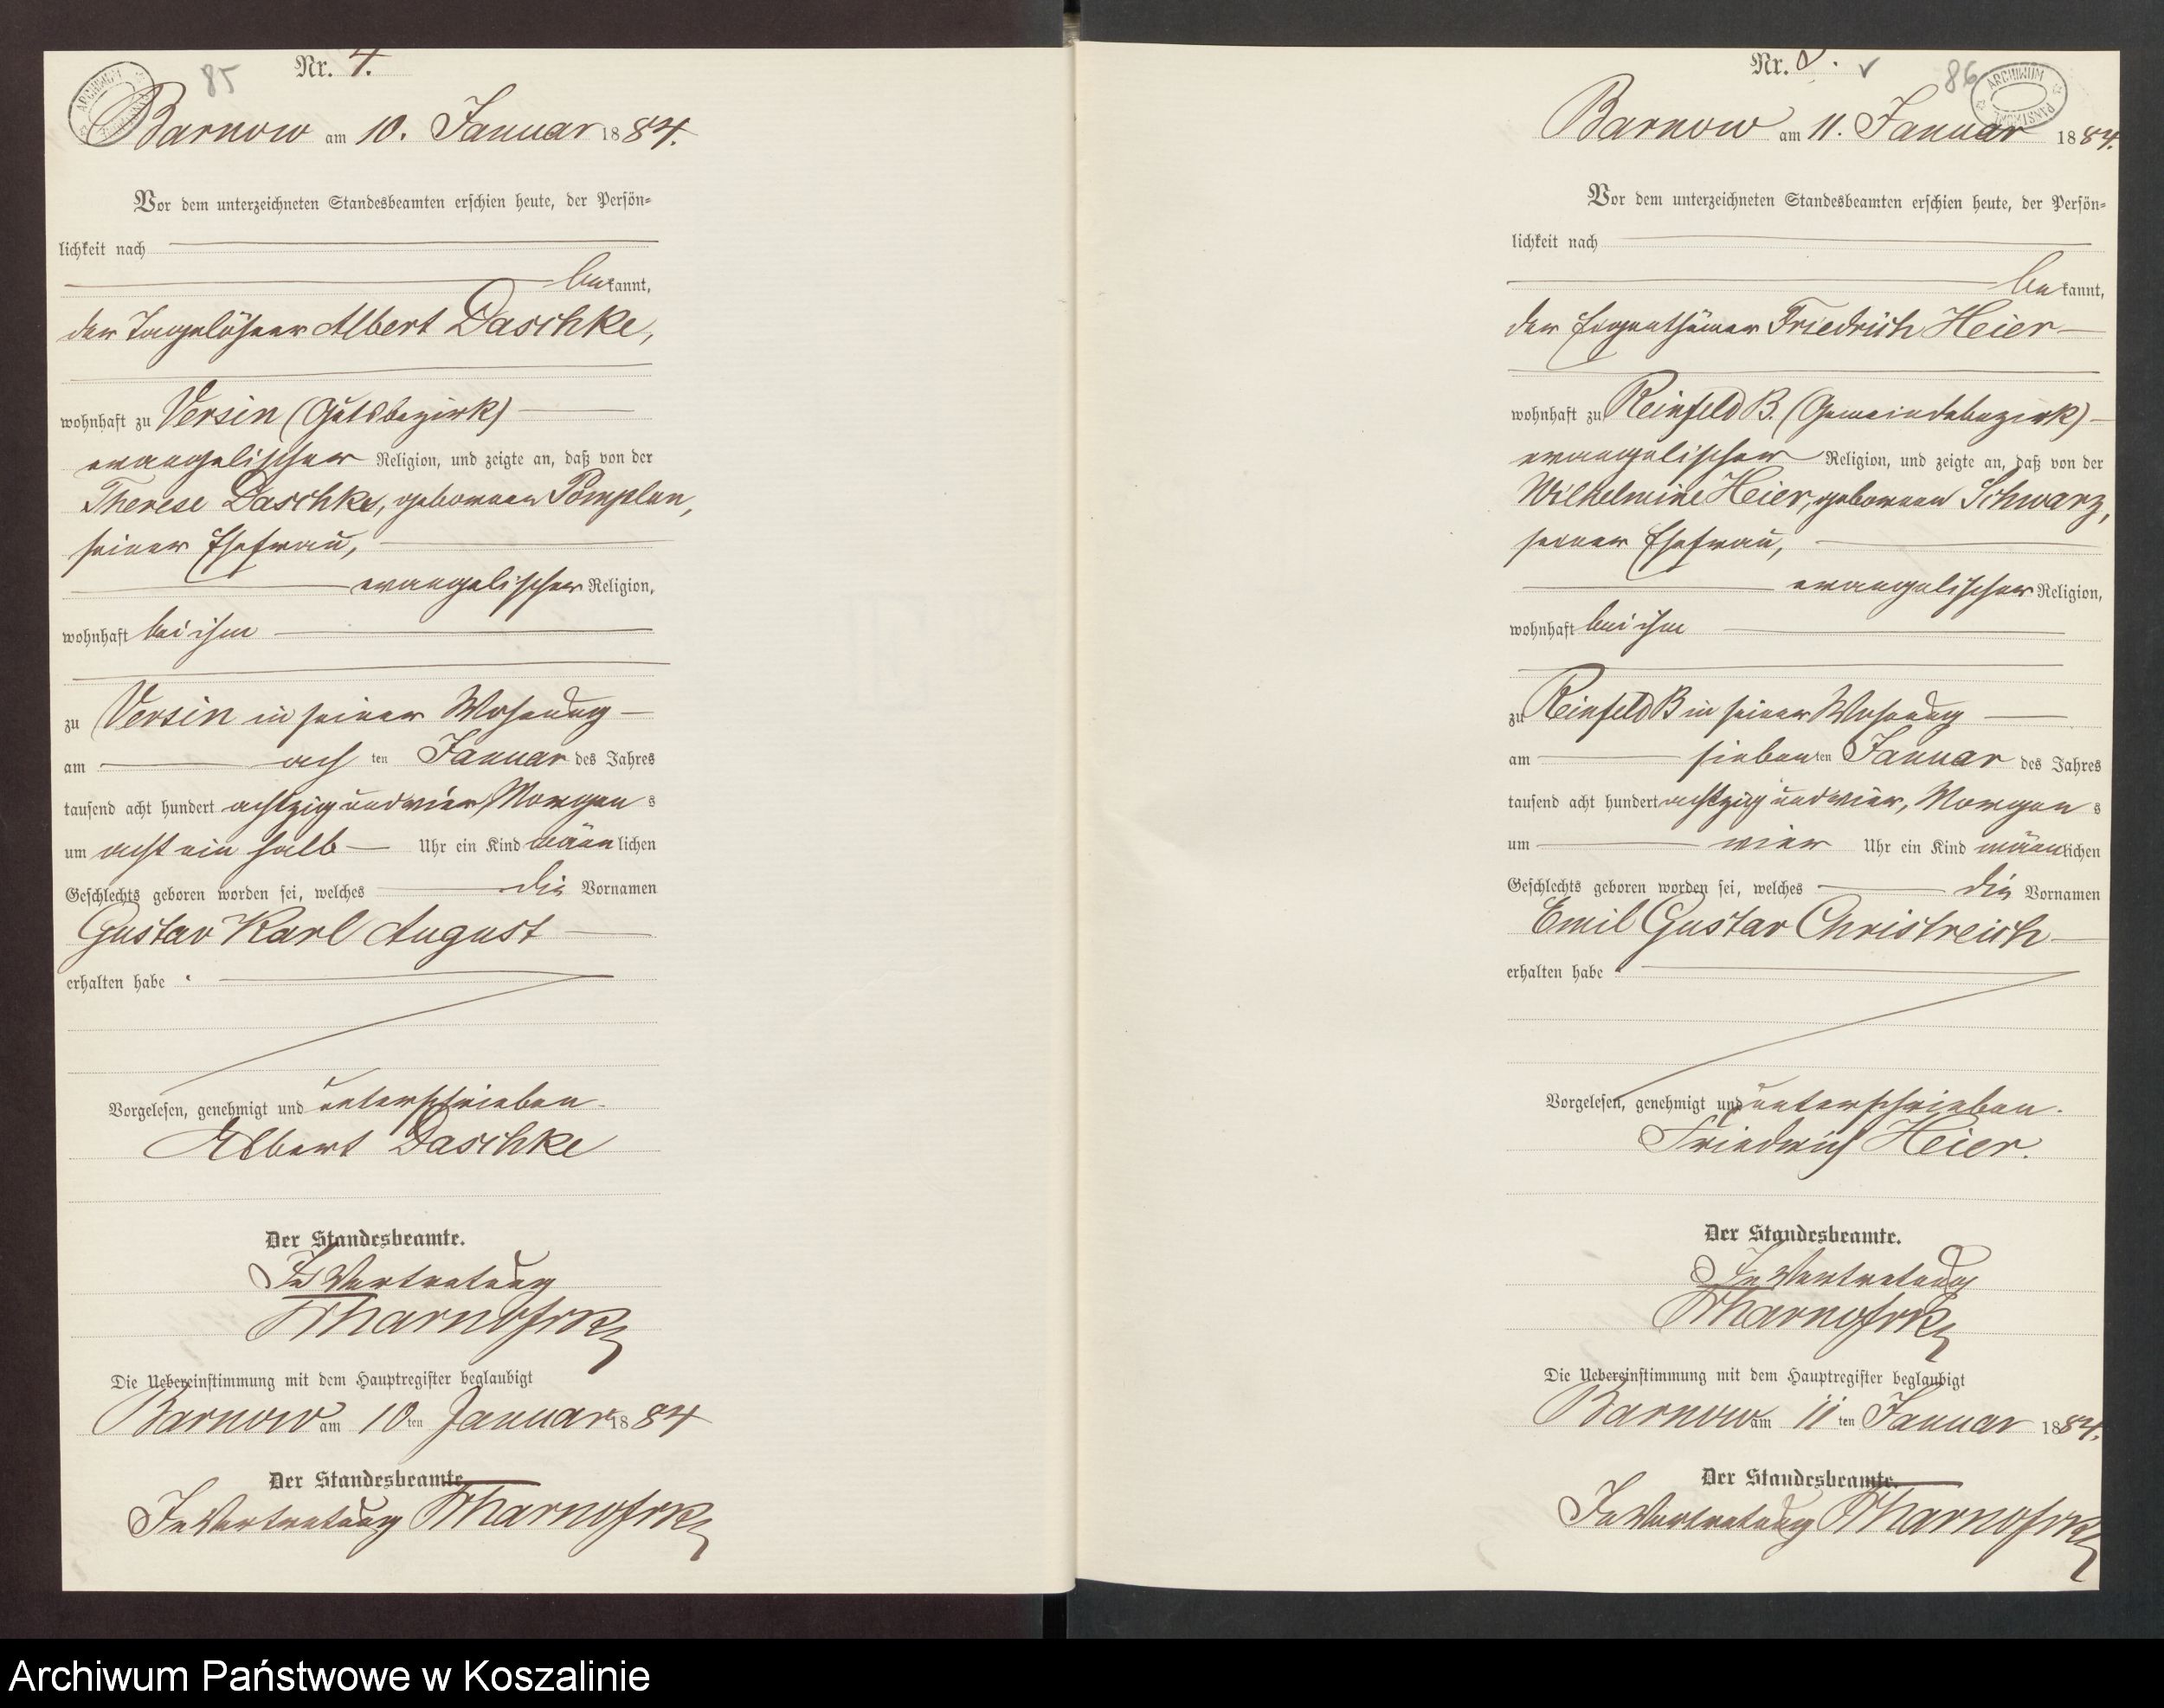 85
Nr.
Barnow am 10. Januar 1884.
Vor dem unterzeichneten Standesbeamten erschien heute, der Persön=
lichkeit nach
bekannt,
der Tagelöhner Albert Daschke,
wohnhaft zu Versin (Gutsbezirk)
evangelischer Religion, und zeigte an, daß von der
Therese Daschke, geborenen Pomplun,
seiner Ehefrau,
evangelischer Religion,
wohnhaft bei ihm
zu Versin in seiner Wohnung
am achten Januar des Jahres
tausend acht hundert achtzig und vier, Morgens
um acht ein halb Uhr ein Kind männlichen
Geschlechts geboren worden sei, welches die Vornamen
Gustav Karl August
erhalten habe.
Vorgelesen, genehmigt und unterschrieben.
Albert Daschke
Der Standesbeamte.
In Vertretung
Die Uebereinstimmung mit dem Hauptregister beglaubigt
Barnow am 10ten Januar 1884
Der Standesbeamte.
In Vertretung
Nr.
86
ARCHIWUM
Barnow am 11. Januar 1884.
Vor dem unterzeichneten Standesbeamten erschien heute, der Persön=
lichkeit nach
bekannt,
der Eigenthümer Friedrich Heier
wohnhaft zu Reinfeld B. (Gemeindebezirk)
evangelischer Religion, und zeigte an, daß von der
Wilhelmine Heier, geborenen Schwarz,
seiner Ehefrau,
evangelischer Religion,
wohnhaft bei ihm
zu Reinfeld B in seiner Wohnung
am siebenten Januar des Jahres
tausend acht hundert achtzig und vier, Morgens
um vier Uhr ein Kind männlichen
Geschlechts geboren worden sei, welches die Vornamen
Emil Gustav Christreich
erhalten habe.
Vorgelesen, genehmigt und unterschrieben.
Friedrich Heier.
Der Standesbeamte.
In Vertretung
Die Uebereinstimmung mit dem Hauptregister beglaubigt
Barnow am 11ten Januar 1884.
Der Standesbeamte.
In Vertretung
Archiwum Państwowe w Koszalinie